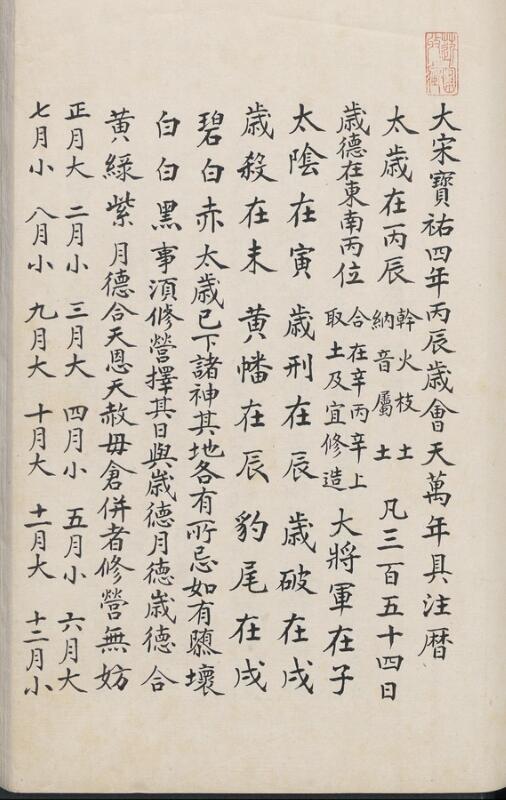 大宋寶祐四年丙辰歲會天萬年具注曆
太歲在丙辰 幹火枝土 納音屬土 凡三百五十四日
歲德在東南丙位 合在辛丙辛上 取土及宜修造 大將軍在子
太陰在寅 歲刑在辰 歲破在戌
歲殺在未 黃幡在辰 豹尾在戌
碧白赤 太歲已下諸神其地各有所忌如有隳壞
白白黑 事湏修營擇其日與歲德月德歲德合
黃綠紫 月德合天恩天赦毋倉併者修營無妨
正月大 二月小 三月大 四月小 五月小 六月大
七月小 八月小 九月大 十月大 十一月大 十二月小